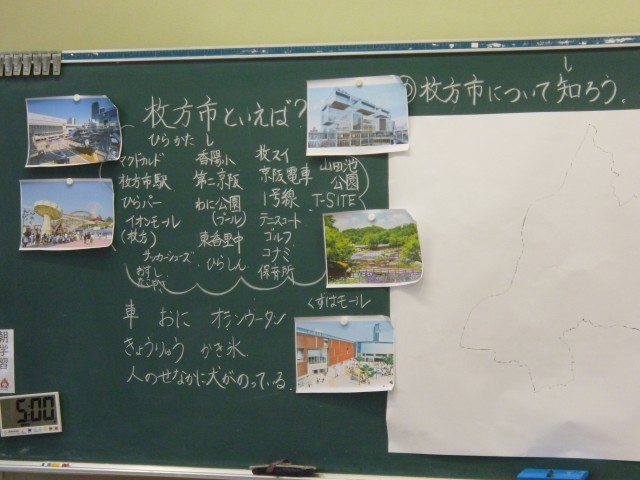 枚方市といえば?
ひらかたし
マクドナルド
枚方市駅
ひらパー
イオンモール
(枚方)
サッカーシューズ
香陽小
第二京阪
わに公園
(プール)
東香里中
ひらしん
枚スイ
京阪電車
1号線
テニスコート
ゴルフ
コナミ
保育所
山田池
公園
T-SITE
くずはモール
車 おに オランウータン
きょうりゅう かき氷
人のせなかに犬がのっている。
し
枚方市について知ろう。
朝学習
5:00